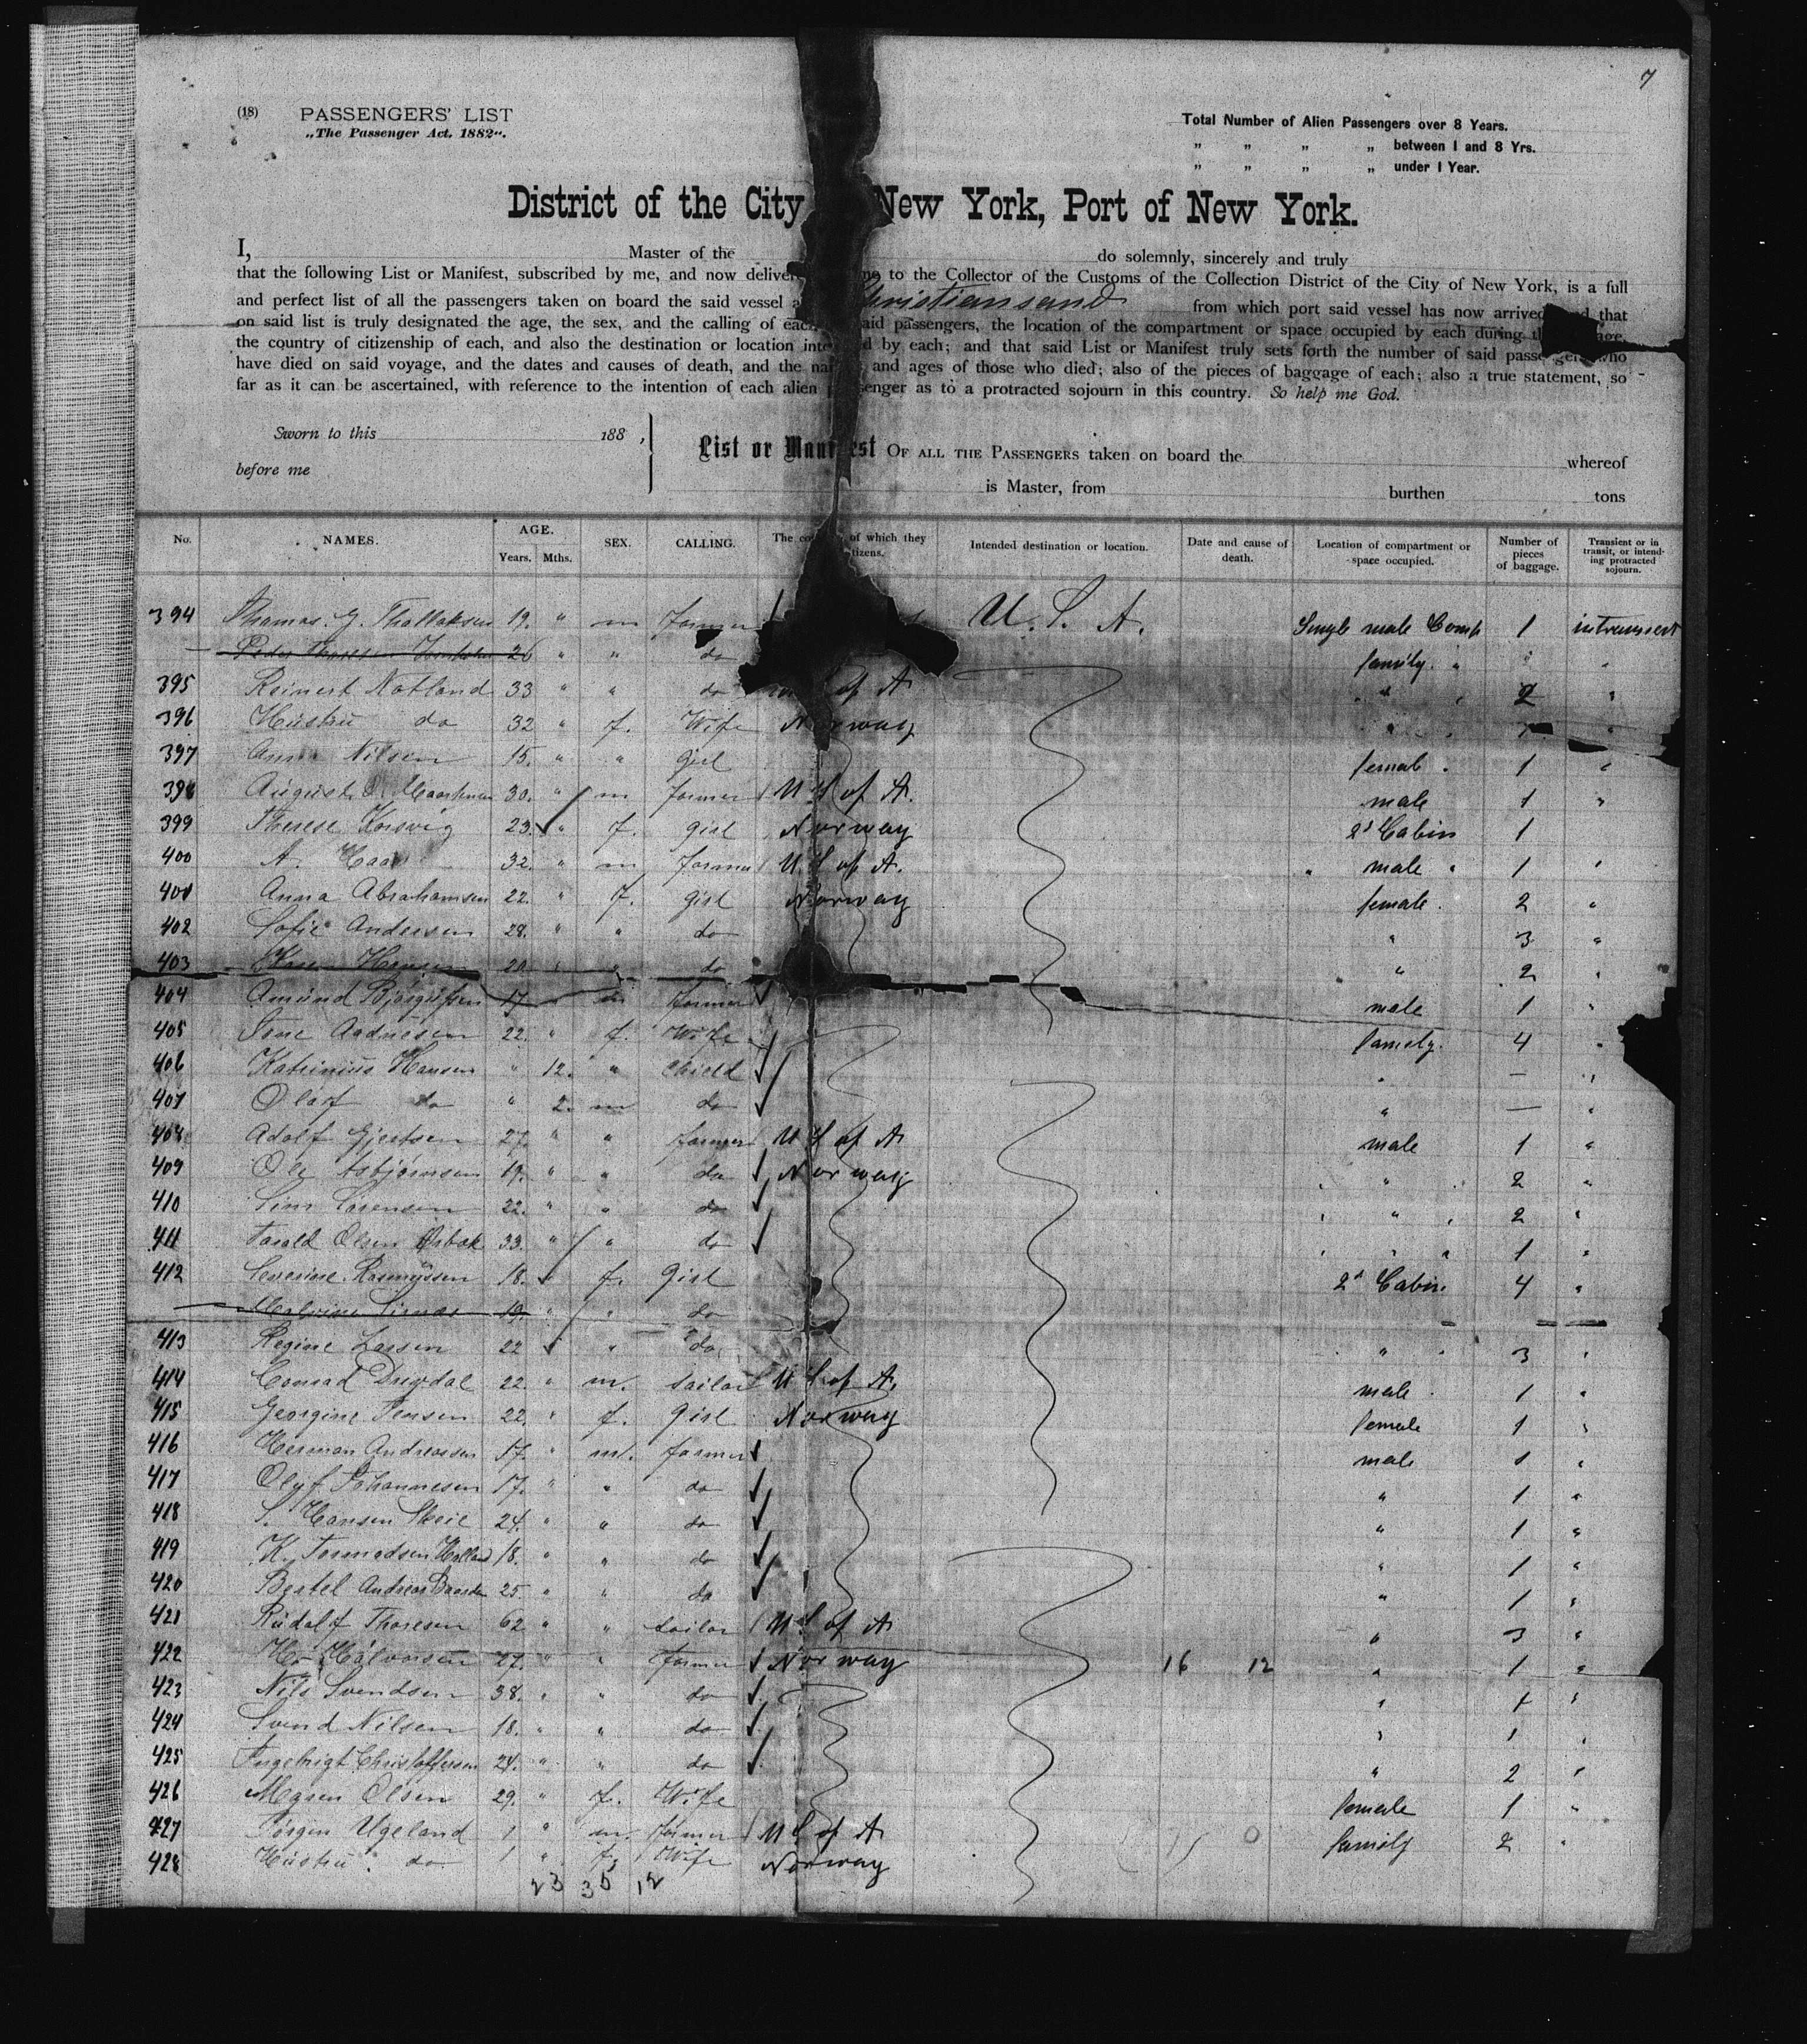 7
(18) PASSENGERS' LIST
„The Passenger Act, 1882".
Total Number of Alien Passengers over 8 Years.
„ „ „ „ between 1 and 8 Yrs.
„ „ „ „ under 1 Year.
District of the City New York, Port of New York.
I, Master of the do solemnly, sincerely and truly
that the following List or Manifest, subscribed by me, and now to the Collector of the Customs of the Collection District of the City of New York, is a full
and perfect list of all the passengers taken on board the said vessel Christiansand from which port said vessel has now arrived that
on said list is truly designated the age, the sex, and the calling of said passengers, the location of the compartment or space occupied by each during
the country of citizenship of each, and also the destination or location by each; and that said List or Manifest truly sets forth the number of said who
have died on said voyage, and the dates and causes of death, and the and ages of those who died; also of the pieces of baggage of each; also a true statement, so
far as it can be ascertained, with reference to the intention of each alien as to a protracted sojourn in this country. So help me God.
Sworn to this 188 ,
before me
List or Manifest OF ALL THE PASSENGERS taken on board the whereof
is Master, from burthen tons
No. NAMES. AGE. Years. Mths. SEX. CALLING. The of which they Intended destination or location. Date and cause of death. Location of compartment or space occupied. Number of pieces of baggage. Transient or in transit, or intending protracted sojourn.
394 Thomas. G. Thollaksen 19. " m farmer U. S. A. Single male Comp 1
26 " " do family. "
395 Reinert Notland 33 " " do of A " 2 "
396 Hustru do 32 " f. Wife Norway "
397 Anna Nilsen 15. " " girl female . 1 "
398 August 30. " m farmer U S of A. male 1 "
399 Therese 23. " f. girl Norway 2d Cabin 1
400 A. 32. " m farmer U. S of A. male " 1 "
401 Anna Abrahamsen 22. " f. girl Norway female . 2 "
402 Sofie Andersen 28. " " do " 3 "
403 Hansen 20. " " do " 2 "
404 Amund 17 " m farmer male 1 "
405 22. " f. Wife family. 4 "
406 Hansen " 12. " child " — "
407 Olaf do " 2. m do " — "
408 Adolf Gjertsen 27. " " farmer U S of A male 1 "
409 Ole Asbjørnsen 19. " " do Norway " 2 "
410 Sørensen 22. " " do " 2 "
411 Olsen 33. " " do " 1 "
412 Severine Rasmussen 18. " f. Girl 2d Cabin. 4 "
19. " " do
413 Regine Larsen 22 " do " 3 "
414 Conrad 22. " m. Sailor U S of A. male . 1 "
415 Georgine Jensen 22. " f. Girl Norway female 1 "
416 Herman Andreassen 17. " m. farmer male 1 "
417 Johannesen 17. " " do " 1 "
418 S. Hansen Skeie 24. " " do " 1 "
419 K. 18. " " do " 1 "
420 Bertel Andreas 25. " " do " 1 "
421 Rudolf Thoresen 62 " " sailor U S of A " 3 "
422 H. Halvorsen 27. " " farmer Norway 16 12 " 1 "
423 Nils Svendsen 38. " " do " 1 "
424 Svend Nilsen 18. " " do " 1 "
425 Ingebrigt Christoffersen 24. " " do " 2 "
426 Olsen 29. " f. Wife female 1 "
427 Jørgen Ugeland 1 " m. farmer U S of A 0 family 2 "
428 Hustru do 1 " f. Wife Norway
23 35 12